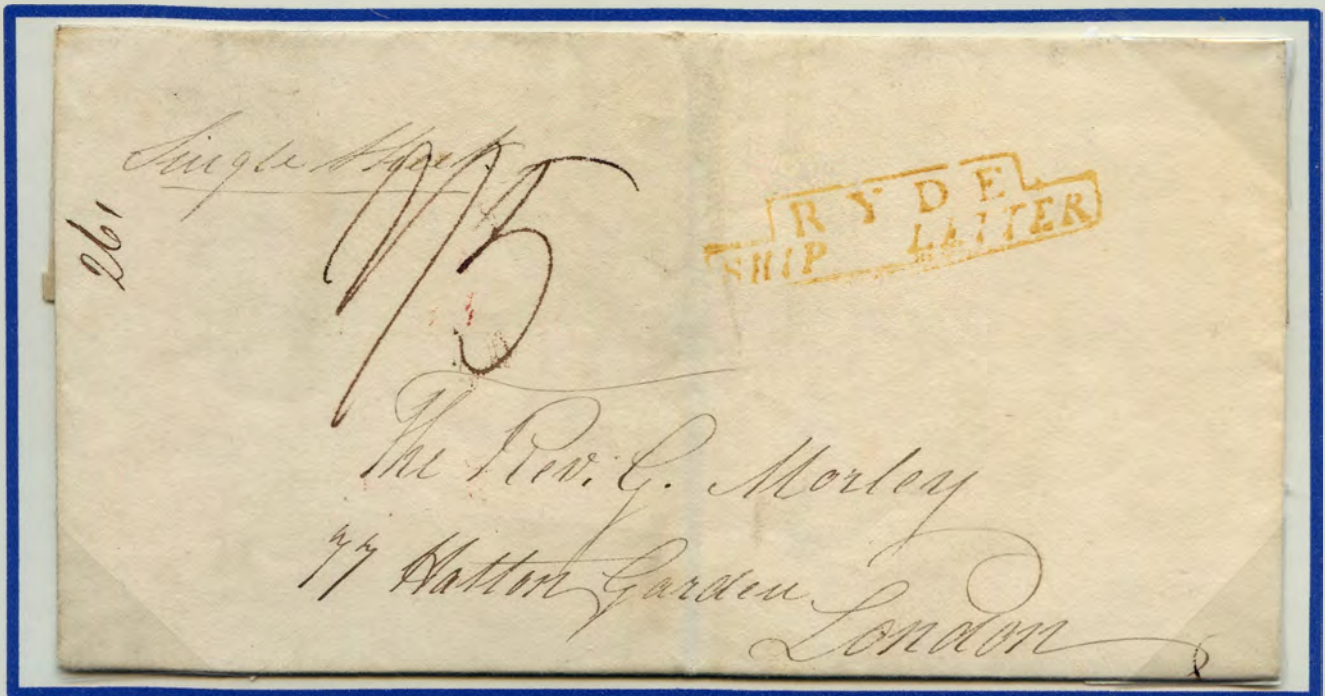 Single Sheet
261
1/5
RYDE
SHIP LETTER
The Rev. G. Morley
77 Hatton Garden
London